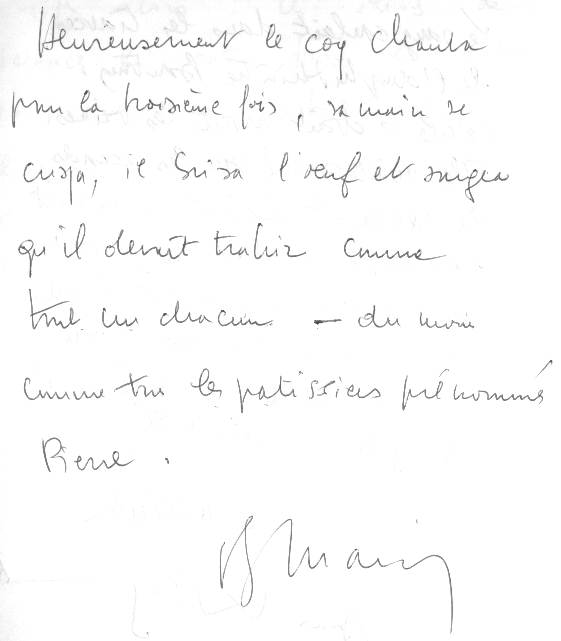 Heureusement le coq chanta
pour la troisième fois, sa main se
crispa, il brisa l'oeuf et songea
qu'il devait trahir comme
tout un chacun — du moins
comme tous les patissiers prénommés
Pierre.